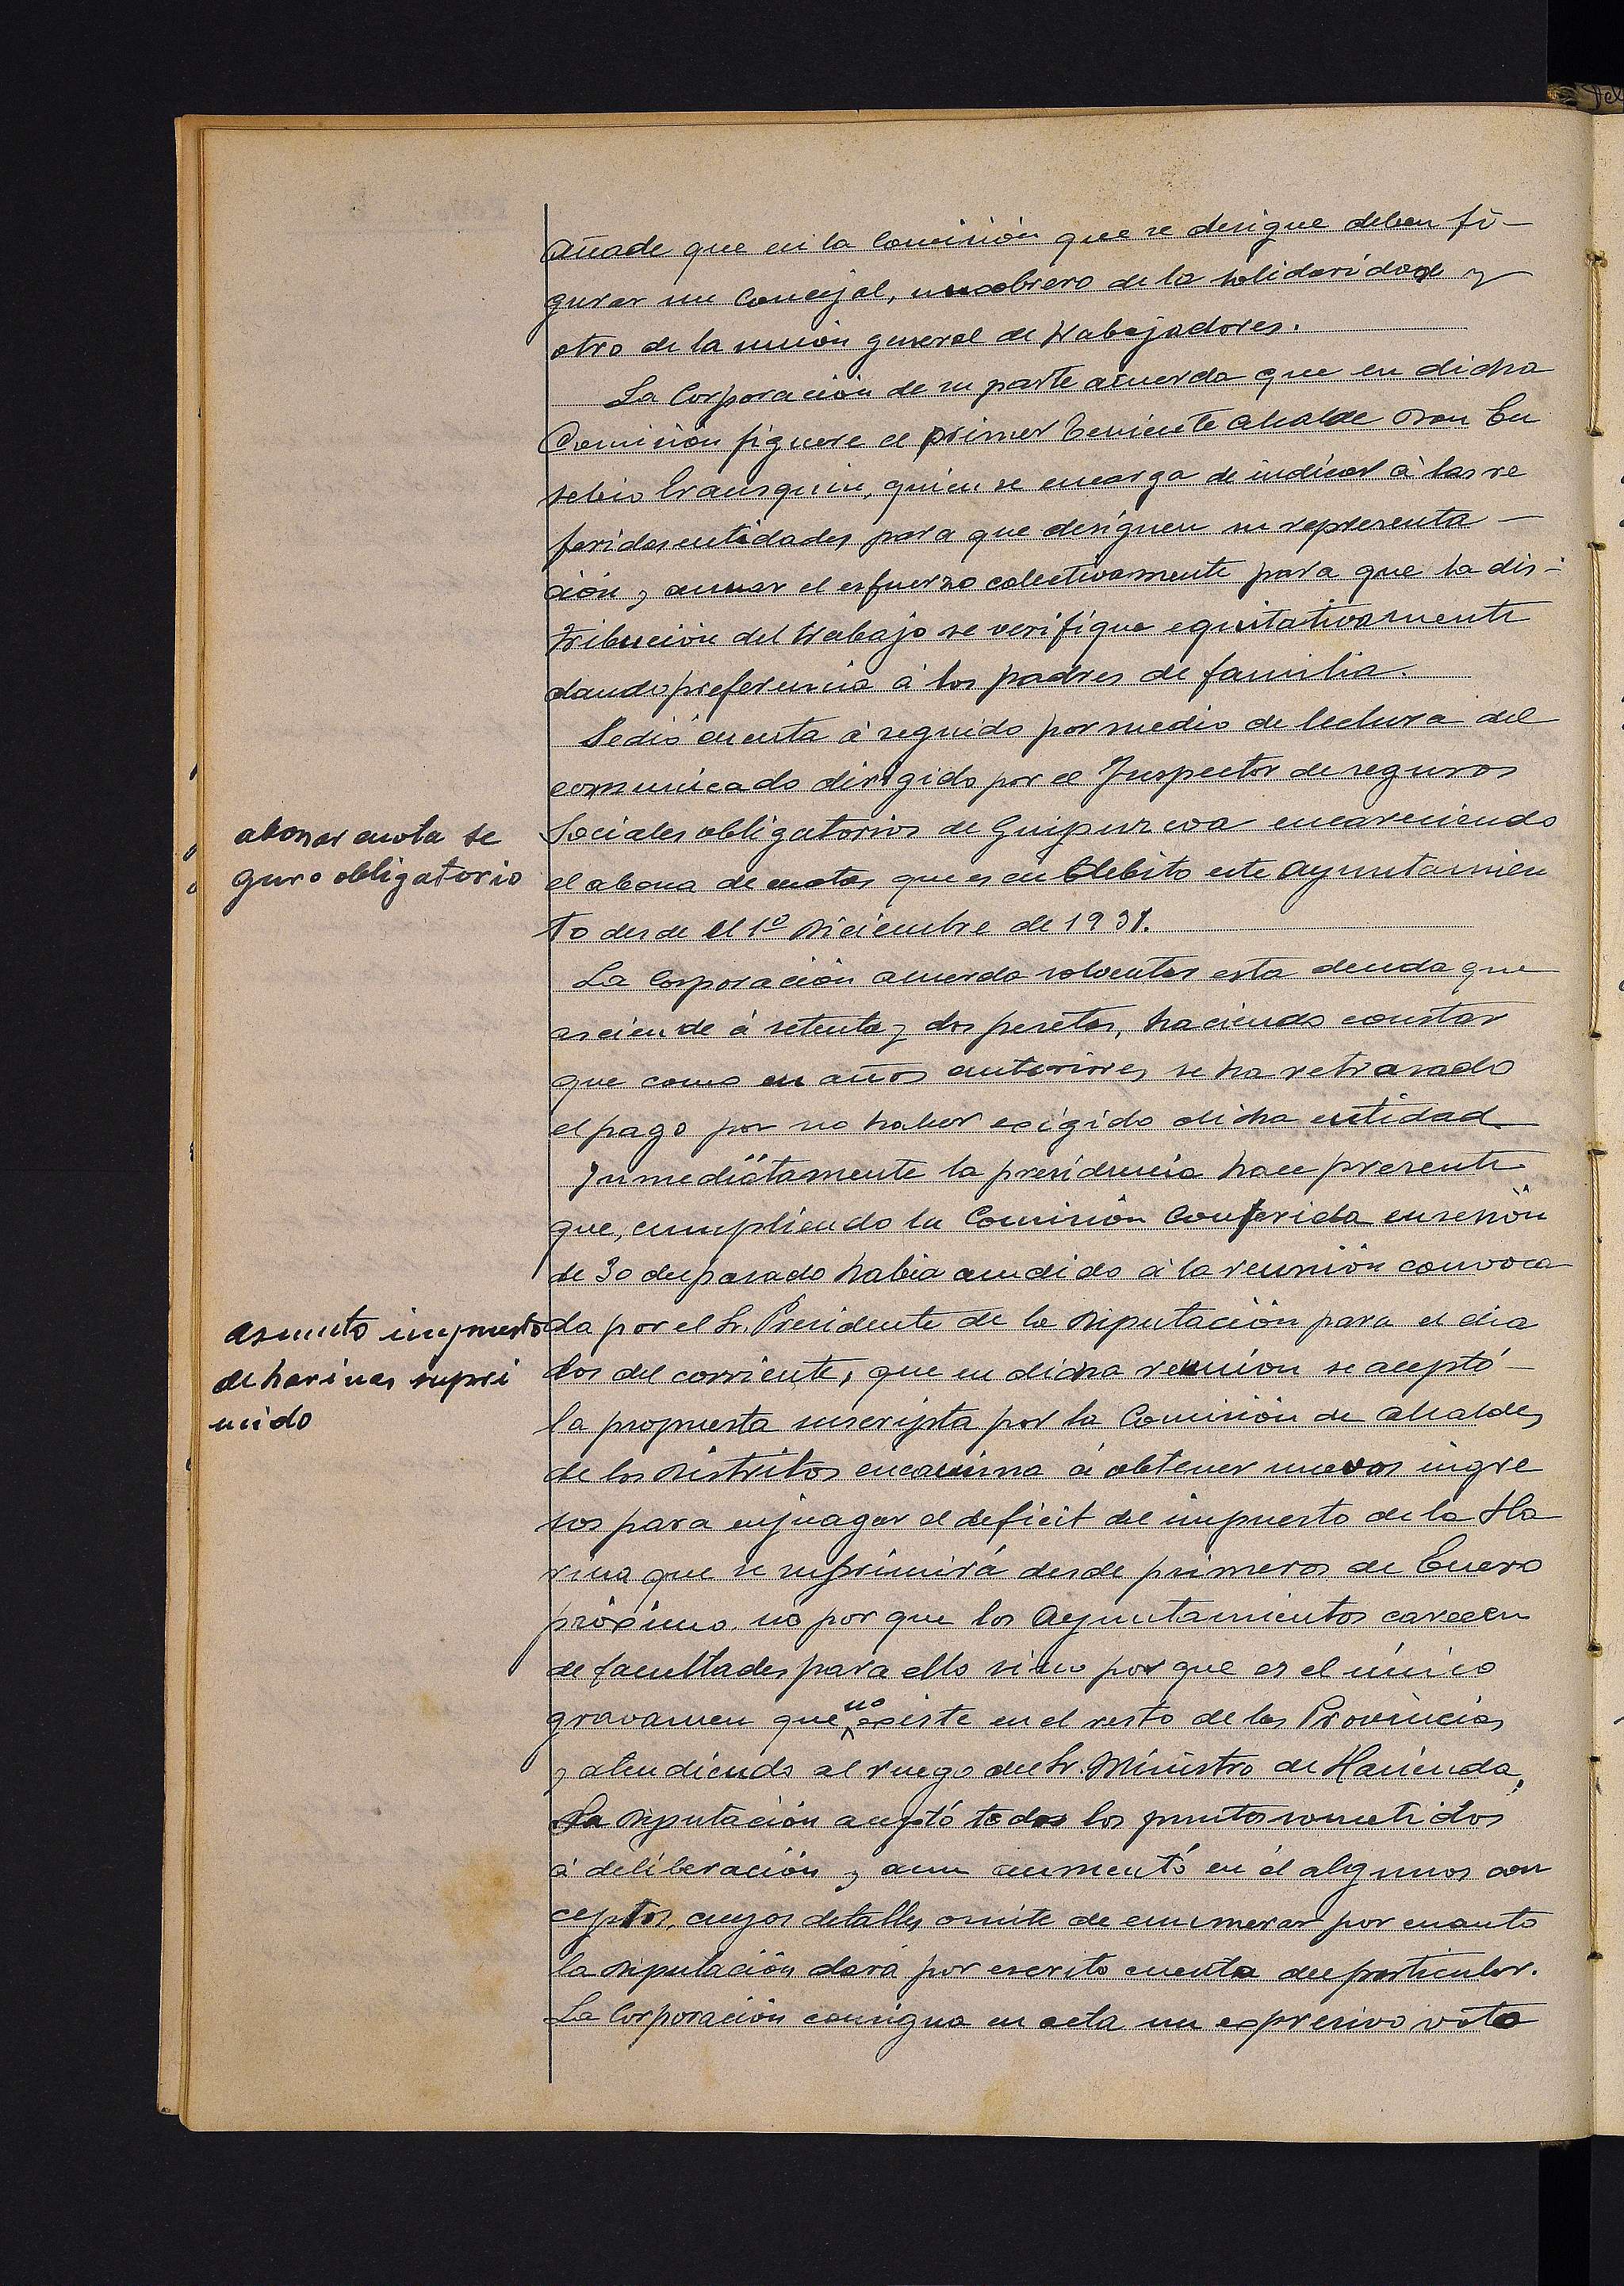 añade que en la Comisión que se designe deben fi-
gurar un Concejal, un obrero de la solidaridad y
otro de la unión general de trabajadores.
La Corporación de su parte acuerda que en dicha
Comisión figuere el primer teniente alcalde Don Eu
sebio Erausquin, quien se encarga de indicar á las re
feridas entidades para que designen su representa-
ción, aunar el esfuerzo colectivamente para que la dis-
tribución del trabajo se verifique equitativamente
dando preferencia á los padres de familia.
Se dió cuenta á seguido por medio de lectura del
comunicado dirigido por el Inspector de seguros
abonar cuota se
Sociales obligatorios de Guipuzcoa encareciendo
guro obligatorio
el abona de cuotas que es en debito este Ayuntamien
to desde el 1º Diciembre de 1931.
La Corporación acuerda solventar esta deuda que
asciende á setenta y dos pesetas, haciendo constar
que como en años anteriores se ha retrasado
el pago por no haber exigido dicha entidad
Inmediátamente la presidencia hace presente
que, cumpliendo la Comisión Conferida en sesión
de 30 del pasado habia acudido á la reunión convoca
asunto impuesto
da por el Sr. Presidente de la Diputación para el dia
de harinas supri
dos del corriente, que en dicha reunion se aceptó-
mido
la propuesta suscripta por la Comisión de alcaldes
de los Distritos encamina á obtener nuevos ingre
sos para enjuagar el deficit del impuesto de la Ha
rina que se suprimirá desde primeros de Enero
próximo. no por que los Ayuntamientos carecen
de facultades para ello sino por que es el único
gravamen que no existe en el resto de las Provincias
y atendiendo al ruego del Sr. Ministro de Hacienda,
La Diputación aceptó todos los puntos sometidos
á deliberación y aun aumentó en él algunos con
ceptos, cuyos detalles omite de enumerar por cuanto
la Diputación dará por escrito cuenta del particular.
La Corporación consigna en acta un expresivo voto